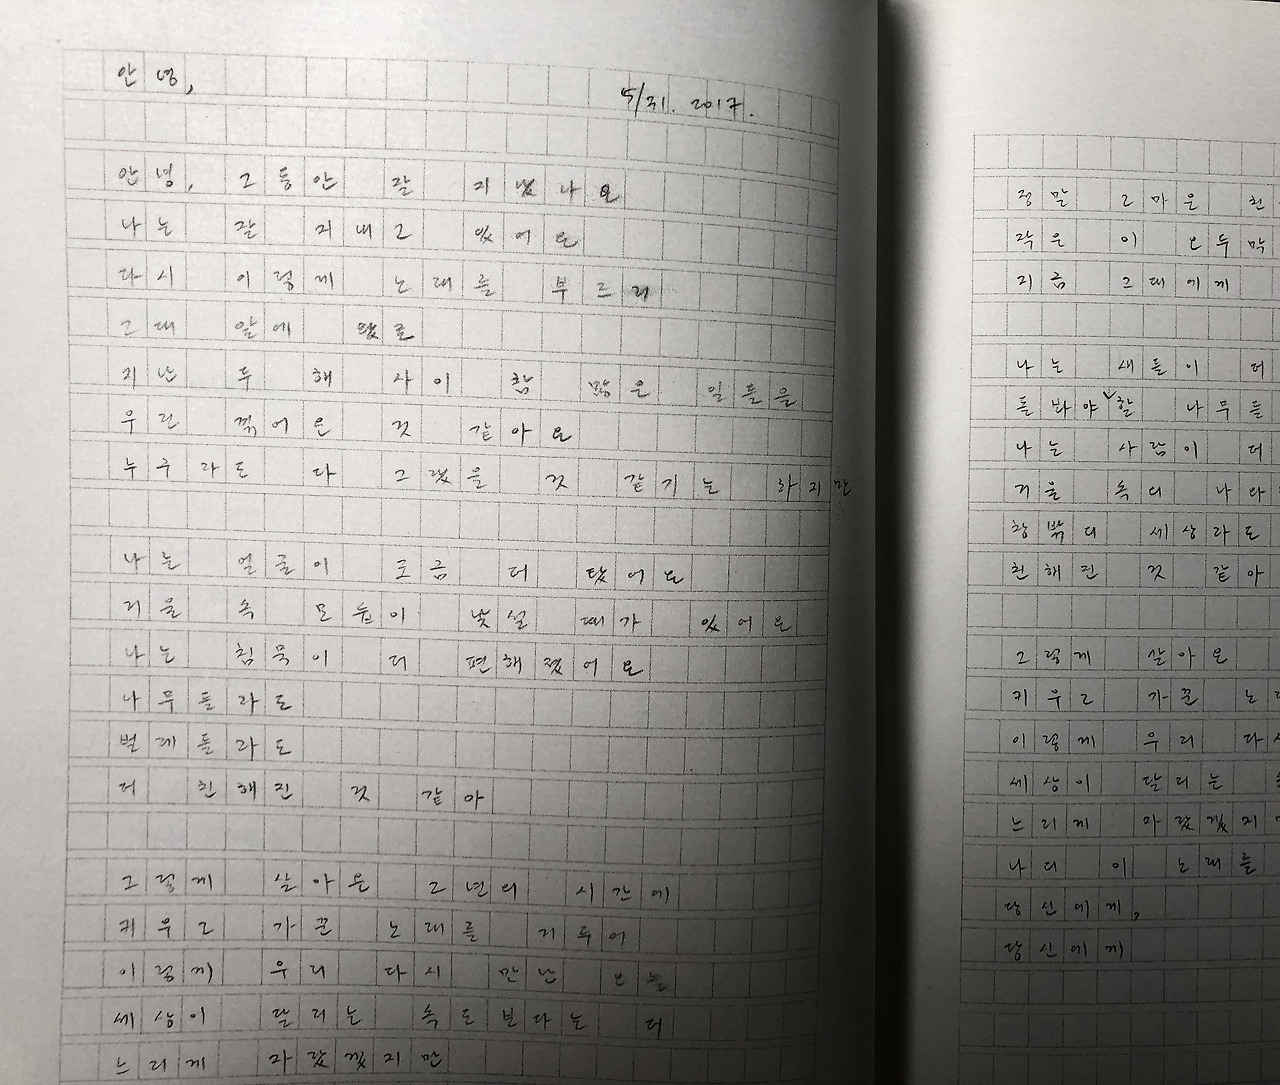 안녕,
5/31. 2017.
안녕, 그동안 잘 지냈나요
나는 잘 지내고 있어요
다시 이렇게 노래를 부르러
그대 앞에 왔죠
지난 두 해 사이 참 많은 일들을
우린 겪어온 것 같아요
누구라도 다 그랬을 것 같기는 하지만
나는 얼굴이 조금 더 탔어요
거울 속 모습이 낯설 때가 있어요
나는 침묵이 더 편해졌어요
나무들과도
벌레들과도
더 친해진 것 같아
그렇게 살아온 2년의 시간에
키우고 가꾼 노래를 거두어
이렇게 우리 다시 만난 오늘
세상이 달리는 속도보다는 더
느리게 자랐겠지만
정말 고마운 친
작은 이 오두막
지금 그대에게
나는 새들이 더
돌봐야 할 나무들
나는 사람이 더
거울 속의 나와
창밖의 세상과도
친해진 것 같아
그렇게 살아온
키우고 가꾼 노
이렇게 우리 다시
세상이 달리는
느리게 자랐겠지만
나의 이 노래를
당신에게,
당신에게